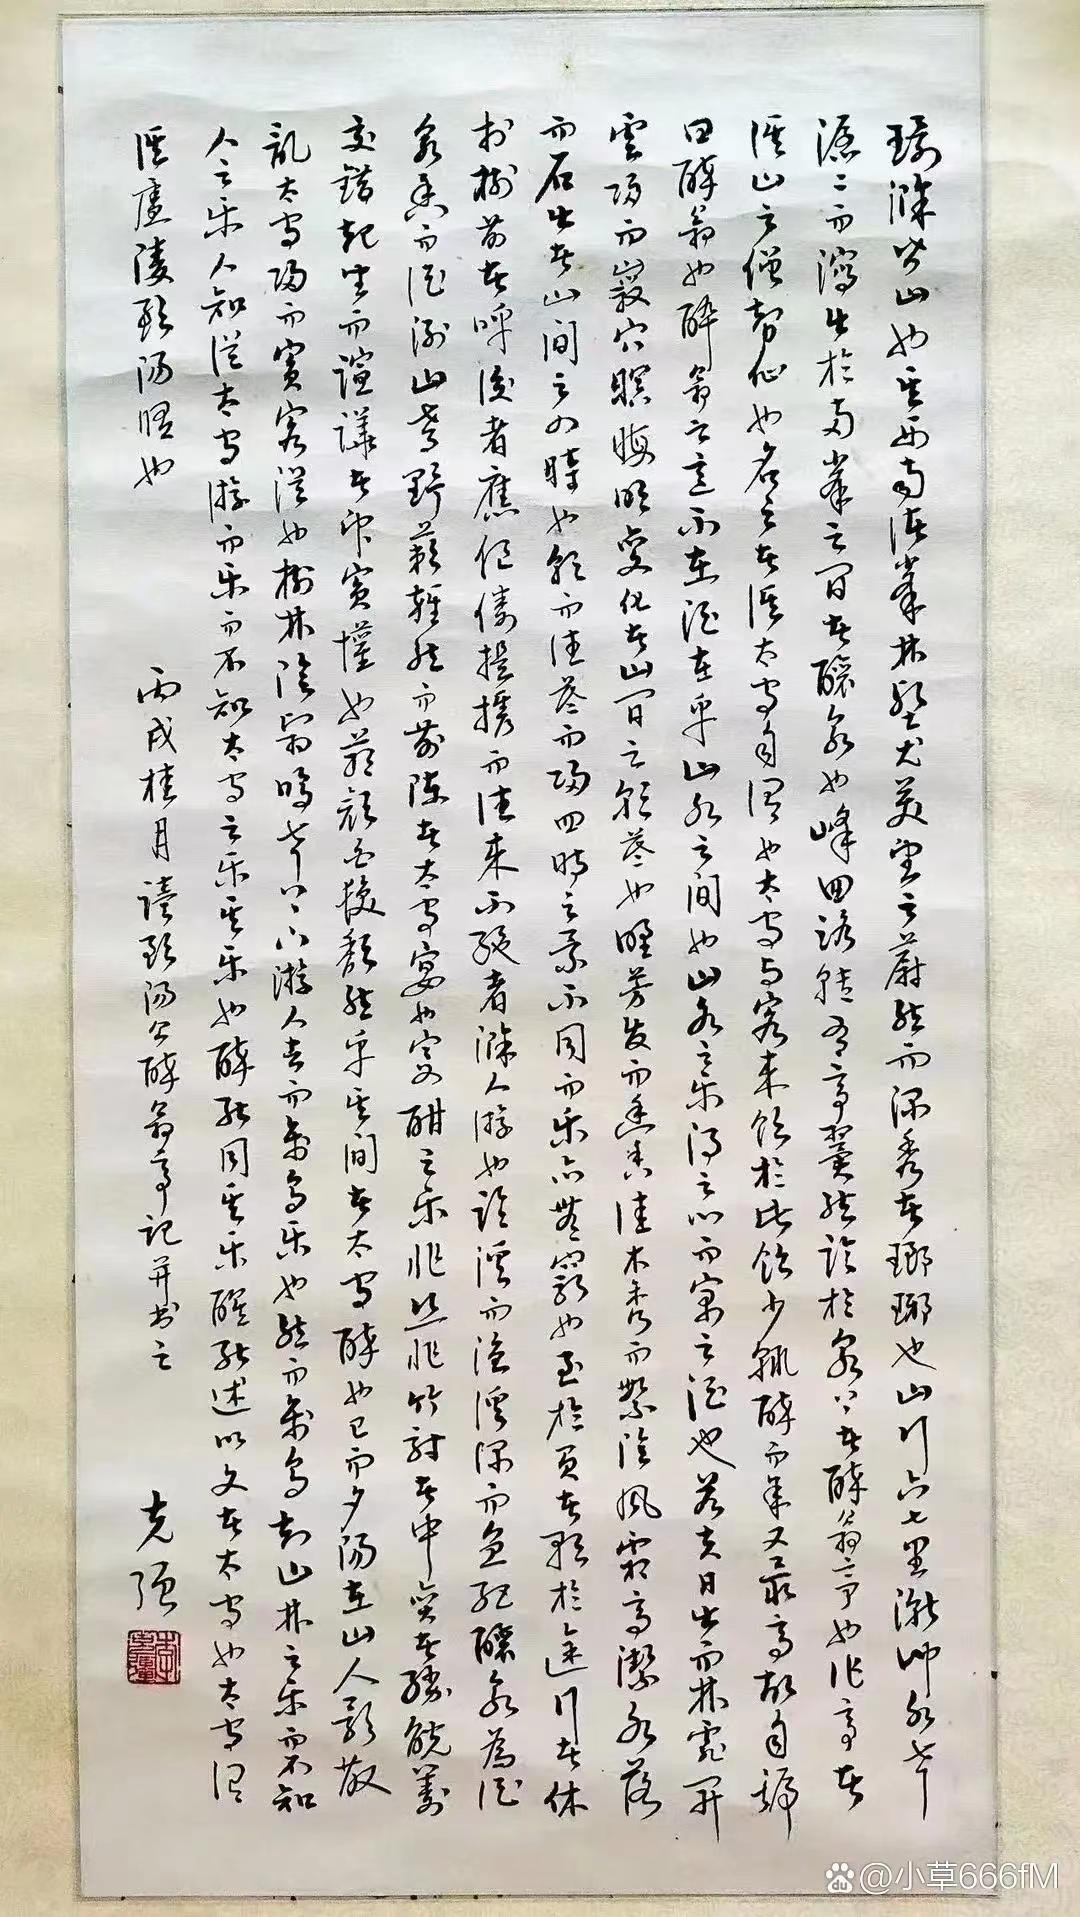 環滁皆山也其西南諸峯林壑尤美望之蔚然而深秀者瑯琊也山行六七里漸聞水聲
潺々而瀉出於兩峯之間者釀泉也峰回路轉有亭翼然臨於泉上者醉翁亭也作亭者
誰山之僧智仙也名之者誰太守自謂也太守與客來飲於此飲少輒醉而年又最高故自號
曰醉翁也醉翁之意不在酒在乎山水之間也山水之樂得之心而寓之酒也若夫日出而林霏開
雲歸而巖穴暝晦明變化者山間之朝暮也野芳發而幽香佳木秀而繁陰風霜高潔水落
而石出者山間之四時也朝而往暮而歸四時之景不同而樂亦無窮也至於負者歌於途行者休
於樹前者呼後者應傴僂提攜而往來不絕者滁人游也臨溪而漁溪深而魚肥釀泉為酒
泉香而酒洌山肴野蔌雜然而前陳者太守宴也宴酣之樂非絲非竹射者中奕者勝觥籌
交錯起坐而諠譁者眾賓懽也蒼顏白髮頹然乎其間者太守醉也已而夕陽在山人影散
亂太守歸而賓客從也樹林陰翳鳴聲上下游人去而禽鳥樂也然而禽鳥知山林之樂而不知
人之樂人知從太守游而樂而不知太守之樂其樂也醉能同其樂醒能述以文者太守也太守謂
誰廬陵歐陽脩也
丙戌桂月讀歐陽公醉翁亭記并书之
克强
@小草666fM